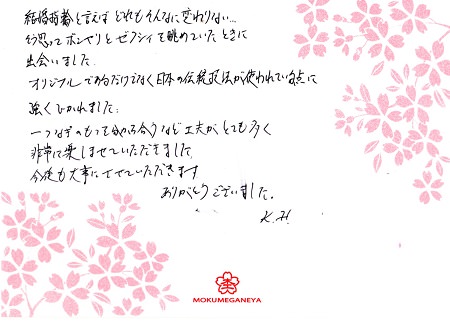 結婚指輪と言えばどれもそんなに変わりない...
そう思ってボンヤリとゼクシィを眺めていたときに
出会いました。
オリジナルであるだけでなく日本の伝統技法が使われている点に
強くひかれました。
一つなぎのもくを分ち合うなど工夫がとても多く
非常に楽しませていただきました。
今後も大事にさせていただきます
ありがとうございました。
K.H
MOKUMEGANEYA